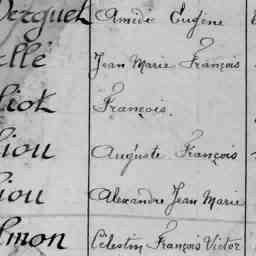 Verguet Amédé Eugène
ellé Jean Marie François
liot François.
liou Auguste François
liou Alexandre Jean Marie
lmon Célestin François Victor